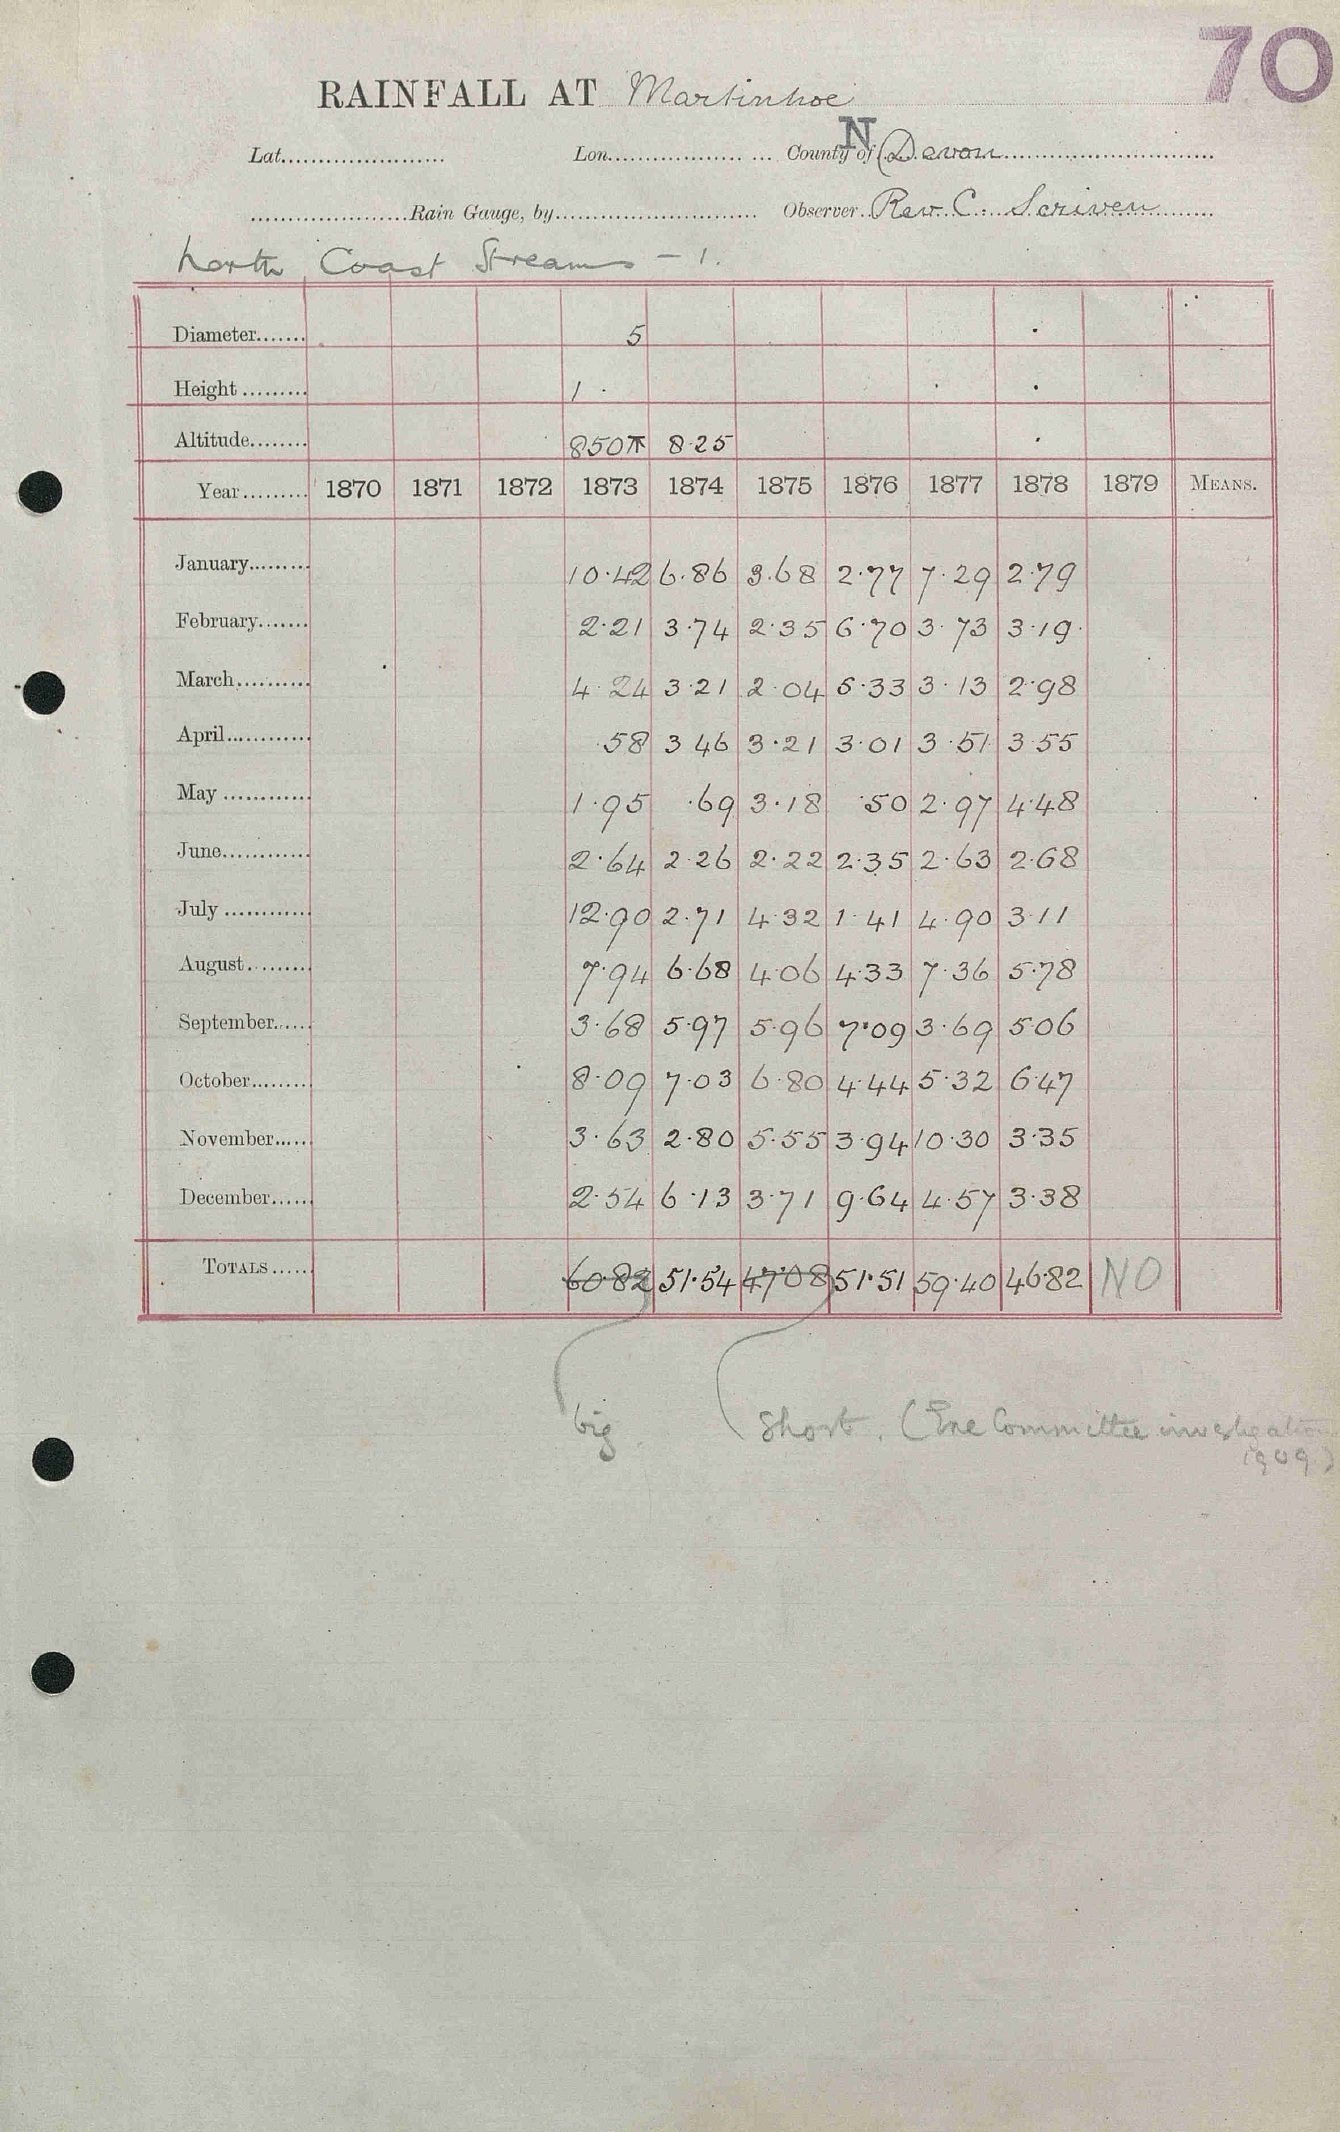 70
RAINFALL AT Martinhoe
N
Lat...................... Lon.................. ... County of (Devon..............................
.....................Rain Gauge, by........................... Observer..Rev. C. Scriven.......
North Coast Streams - 1.
Diameter....... 5
Height ......... 1 ·
Altitude........ 850 8 25
Year......... 1870 1871 1872 1873 1874 1875 1876 1877 1878 1879 MEANS.
January......... 10·42 6·86 3·68 2·77 7·29 2·79
February....... 2·21 3·74 2·35 6·70 3·73 3·19
March.......... 4·24 3·21 2·04 5·33 3·13 2·98
April............ ·58 3 46 3·21 3·01 3·51 3·55
May ............ 1·95 ·69 3·18 ·50 2·97 4·48
June............ 2·64 2·26 2·22 2·35 2·63 2·68
July ............ 12·90 2·71 4·32 1·41 4·90 3·11
August......... 7·94 6·68 4·06 4·33 7·36 5·78
September...... 3·68 5·97 5·96 7·09 3·69 5·06
October......... 8·09 7·03 6·80 4·44 5·32 6·47
November..... 3·63 2·80 5·55 3·94 10·30 3·35
December...... 2·54 6·13 3·71 9·64 4·57 3·38
TOTALS...... 60·82 51·54 47·08 51·51 59·40 46·82 NO
big Short. (Exe Committee investigation
1909.)